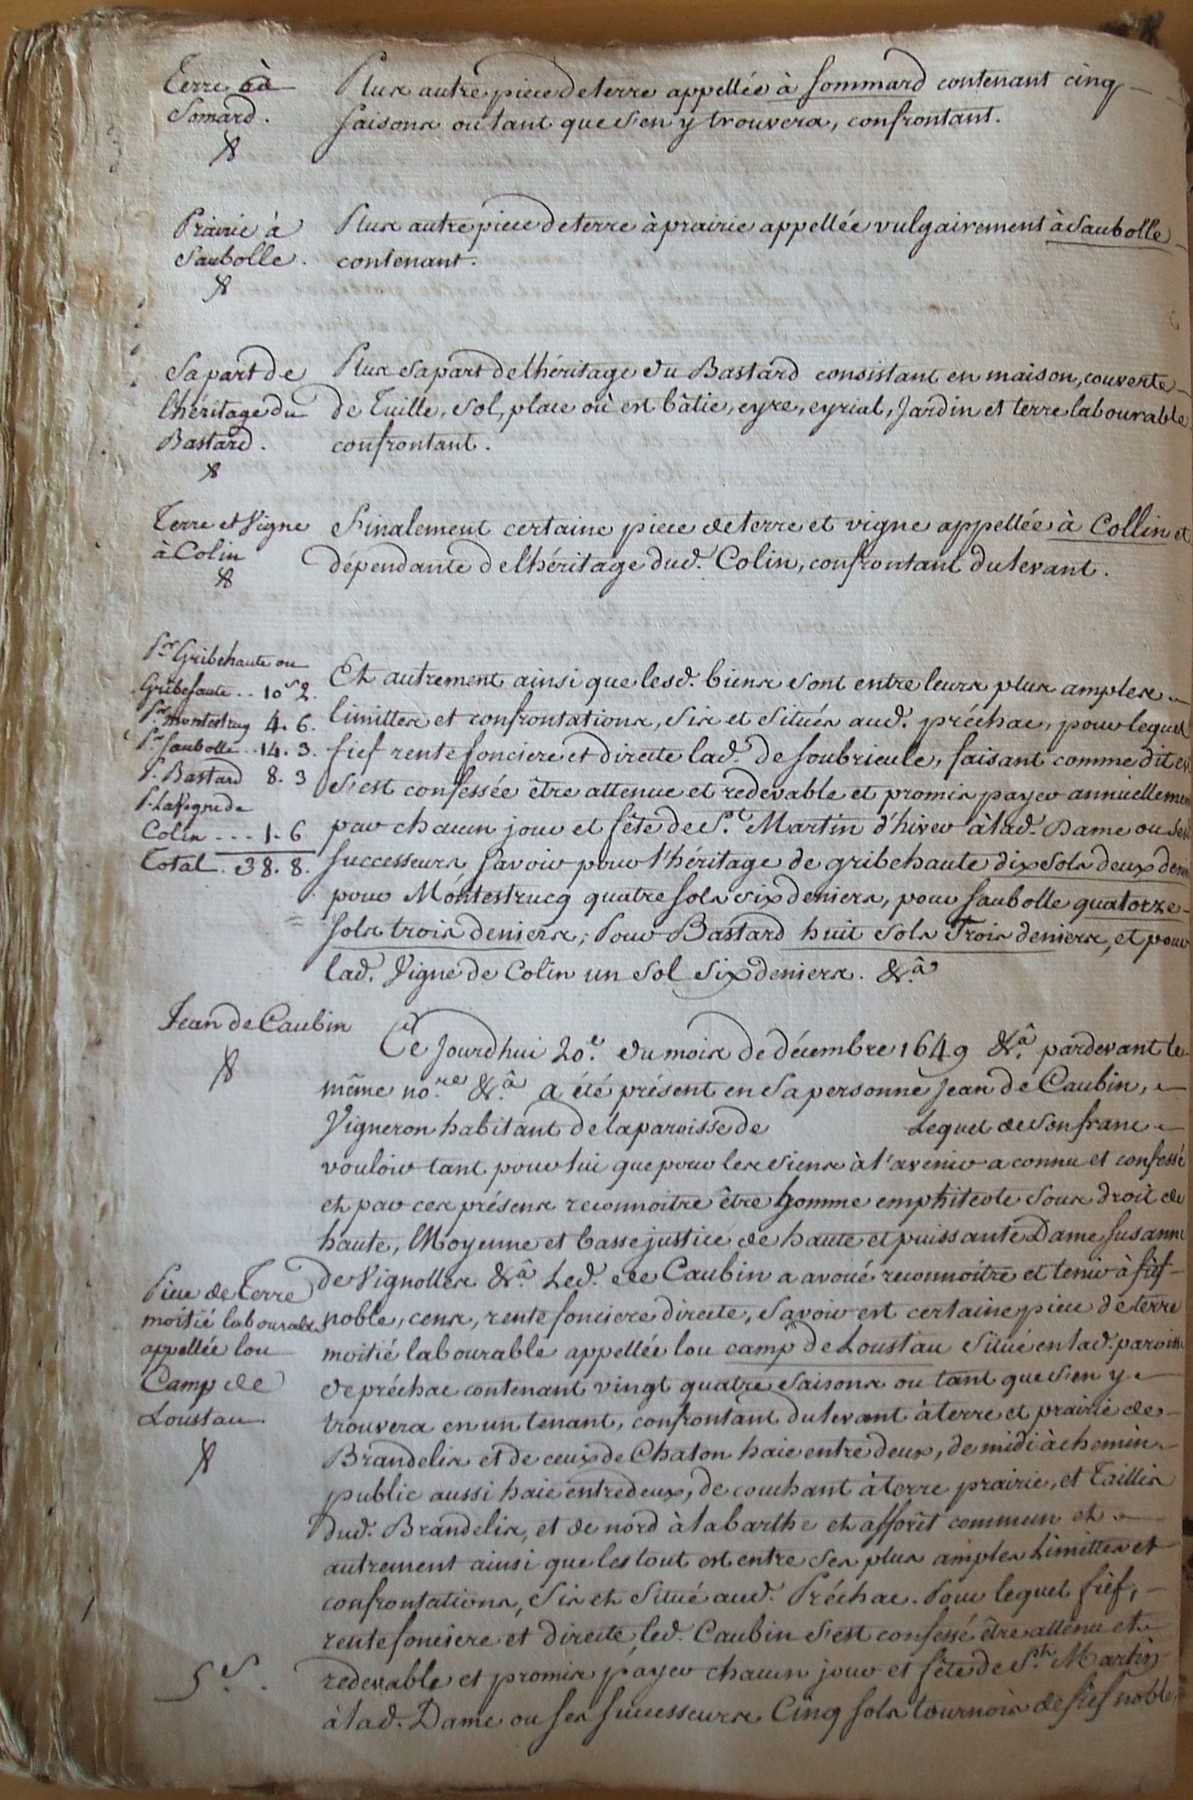 Terre à
Somard.
Plus autre piece de terre appellée à Sommard contenant cinq
saisons ou tant que s'en y trouvera, confrontant.
Prairie à
Saubolle.
Plus autre piece de terre à prairie appellée vulgairement à Saubolle
contenant.
Sa part de
l'héritage du
Bastard.
Plus sa part de l'héritage du Bastard consistant en maison, couverte
de Tuille, sol, place où est bâtie, eyre, eyrial, Jardin et terre labourable
confrontant.
Terre et Vigne
à Colin
Finalement certaine piece de terre et vigne appellée à Collin et
dépendante de l'héritage dud. Colin, confrontant du levant.
Pr. Gribehaute ou
Gribefaute .. 10s 2.
Pr. montestrug 4. 6.
Pr. Saubolle .. 14. 3.
P. Bastard 8. 3
P. La Vigne de
Colin ... 1. 6
Total. 38. 8.
Et autrement ainsi que lesd. biens sont entre leurs plus amples
limittes et confrontations, sis et situés aud. préchac, pour lequel
fief rente fonciere et directe lad. de Soubrieule, faisant comme dit est
s'est confessée être attenue et redevable et promis payer annuellement
par chacun jour et fête de St. Martin d'hiver à lad. Dame ou ses
successeurs savoir pour l'héritage de gribehaute dix sols deux deniers
pour Montestrucq quatre sols six deniers, pour Saubolle quatorze
sols trois deniers, Pour Bastard huit sols Trois deniers, et pour
lad. Vigne de Colin un sol six deniers. &.a
Jean de Caubin
Ce Jourdhui 20.e du mois de décembre 1649 &.a pardevant le
même no.re &.a a été présent en sa personne Jean de Caubin,
Vigneron habitant de la paroisse de Lequel de son franc
vouloir tant pour lui que pour les siens à l'avenir a connu et confessé
et par ces présens reconnoitre être homme emphiteote sous droit de
haute, Moyenne et basse justice de haute et puissante Dame Susanne
de Vignolles &.a Led. de Caubin a avoué reconnoitre et tenir à fief
noble, cens, rente fonciere directe, savoir est certaine piece de terre
moitié labourable appellée lou camp de Loustau situé en lad. paroisse
de préchac contenant vingt quatre saisons ou tant que s'en y
trouvera en un tenant, confrontant du levant à terre et prairie de
Brandelis et de ceux de Chaton haie entre deux, de midi à chemin
public aussi haie entre deux, de couchant à terre prairie, et Taillis
dud. Brandelis, et de nord à la barthe et afforêt commun et
autrement ainsi que les tout est entre ses plus amples Limittes et
confrontations, sis et situé aud. Préchac. Pour lequel fief,
rente fonciere et directe led. Caubin s'est confessé être attenu et
redevable et promis payer chacun jour et fête de St. Martin
à lad. Dame ou ses successeurs Cinq sols tournois de fief noble
Piece de Terre
moitié labourable
appellée lou
Camp de
Loustau.
5 s.